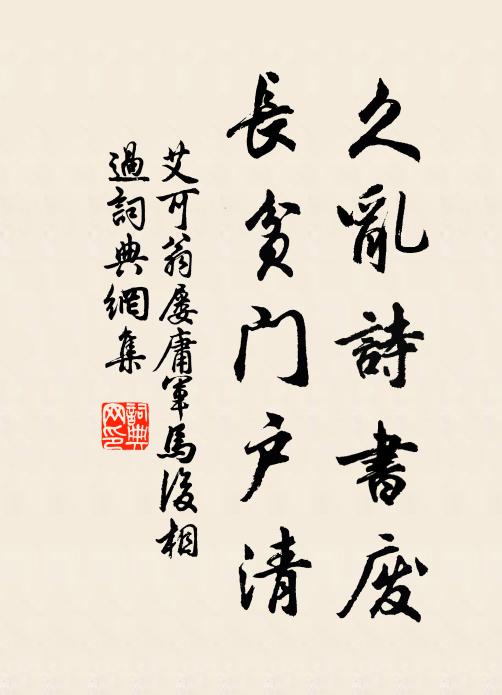 久亂詩書廢
長貧門户清
艾可翁屡庸軍馬後相
過詞典網集
詞典网印